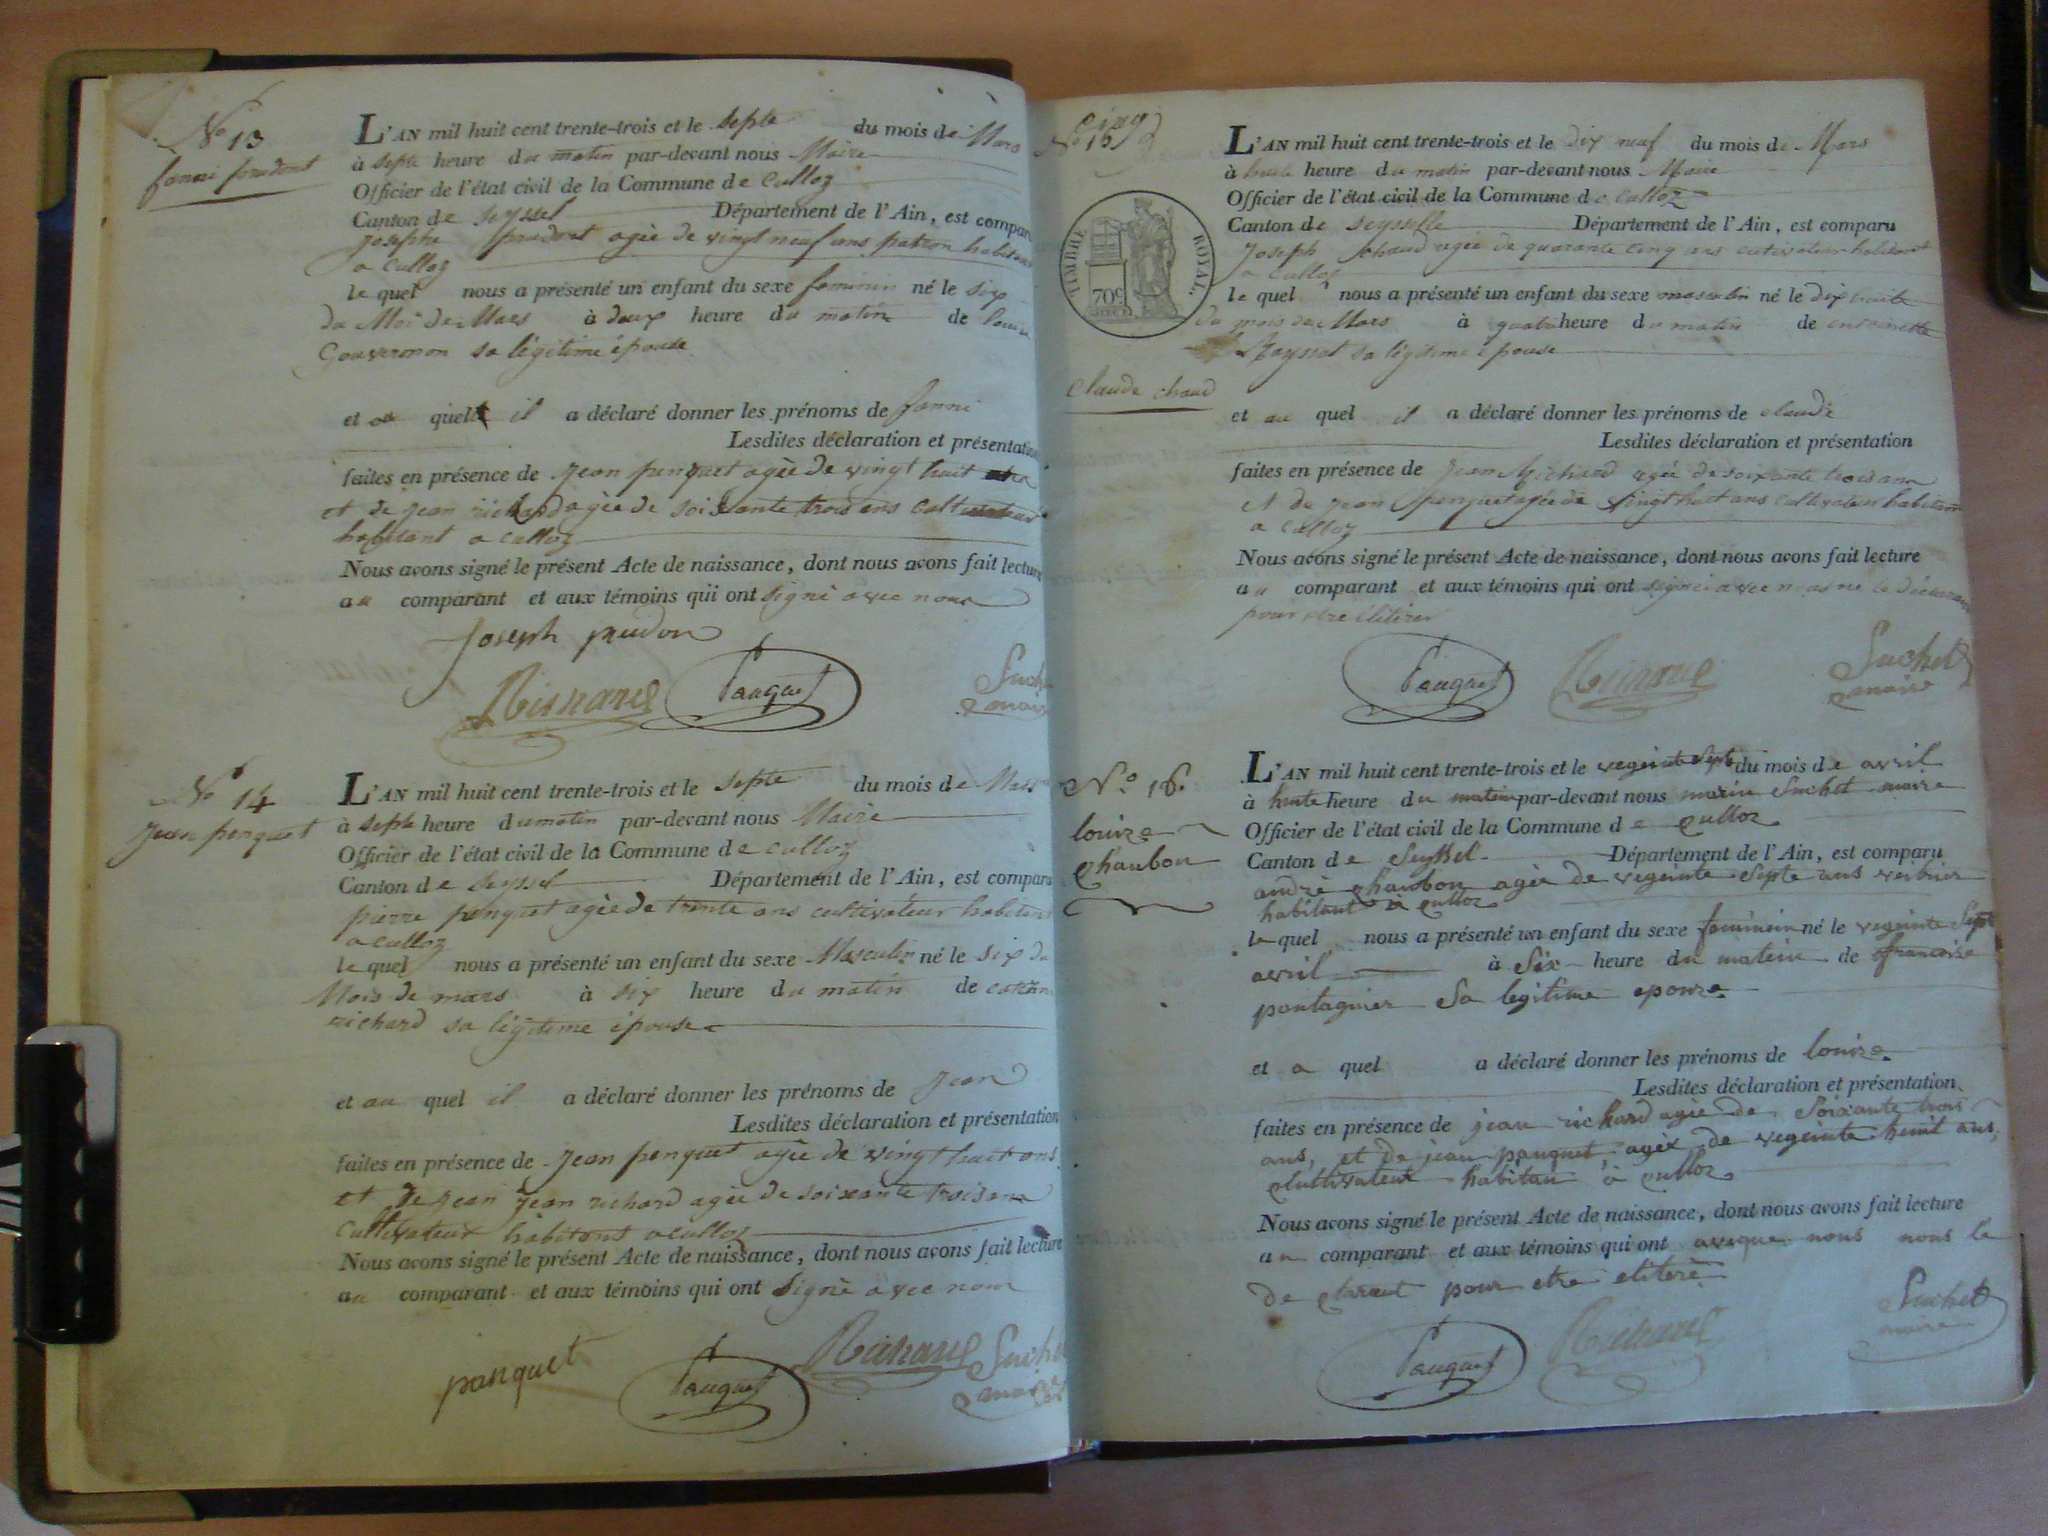 No 13
fanni prudont
L'AN mil huit cent trente-trois et le septe du mois de Mars
à septe heure du matin par-devant nous Maire
Officier de l'état civil de la Commune de Culloz
Canton de Seyssel Département de l'Ain, est comparu
Josephe prudont agée de vingt neuf ans patron habitant
a Culloz
le quel nous a présenté un enfant du sexe feminin né le six
du Moi de Mars à deux heure du matin de louise
Gouvernon sa légitime épouse
et au quel il a déclaré donner les prénoms de fanni
Lesdites déclaration et présentation
faites en présence de jean penquet agée de vingt huit
et de jean richard agée de soixante trois ans cultivateur
habitant a culloz
Nous avons signé le présent Acte de naissance, dont nous avons fait lecture
au comparant et aux témoins qui ont signé avec nous
Joseph prudon
Richard Pauquet Suchet
maire
No 14
Jean penquet
L'AN mil huit cent trente-trois et le septe du mois de Mars
à septe heure du matin par-devant nous Maire
Officier de l'état civil de la Commune de culloz
Canton de seyssel Département de l'Ain, est comparu
pierre penquet agée de trente ans cultivateur habitant
a culloz
le quel nous a présenté un enfant du sexe Masculin né le six du
Mois de mars à six heure du matin de
richard sa légitime épouse
et au quel il a déclaré donner les prénoms de jean
Lesdites déclaration et présentation
faites en présence de jean penquet agée de vingt huit ans
et de jean jean richard agée de soixante trois ans
cultivateur habitans a culloz
Nous avons signé le présent Acte de naissance, dont nous avons fait lecture
au comparant et aux témoins qui ont signé avec nous
panquet Pauquet Richard Suchet
maire
No 15
TIMBRE ROYAL
70c
L'AN mil huit cent trente-trois et le dix neuf du mois de Mars
à huite heure du matin par-devant nous Maire
Officier de l'état civil de la Commune de culloz
Canton de seysselle Département de l'Ain, est comparu
Joseph chaud agée de quarante cinq ans cutivateur habitant
a culloz
le quel nous a présenté un enfant du sexe masculin né le dix huite
du mois de Mars à quatre heure du matin de antoinette
sa légitime épouse
claude chaud
et au quel il a déclaré donner les prénoms de claude
Lesdites déclaration et présentation
faites en présence de jean Richard agée de soixante trois ans
et de jean penquet agée de vingt huit ans cultivateur habitant
a culloz
Nous avons signé le présent Acte de naissance, dont nous avons fait lecture
au comparant et aux témoins qui ont signé avec nous né le déclarant
pour etre élitérer
Pauquet Richard Suchet
maire
No 16.
louize
chaubon
L'AN mil huit cent trente-trois et le vegeinte septe du mois de avril
à huite heure du matein par-devant nous Suchet maire
Officier de l'état civil de la Commune de culloz
Canton de Seyssel. Département de l'Ain, est comparu
andré chaubon agée de vegeinte septe ans
habitant à culloz
le quel nous a présenté un enfant du sexe feminien né le vegeinte septe
avril à six heure du matein de francoise
pontagnier sa legitime epouze
et a quel a déclaré donner les prénoms de louize.
Lesdites déclaration et présentation
faites en présence de jean richard agée de soixante trois
ans, et de jean panquet agée de vegeinte heuit ans,
cluttivateur habitan à culloz
Nous avons signé le présent Acte de naissance, dont nous avons fait lecture
au comparant et aux témoins qui ont aveque nous nous le
de claraut pour etre eliteré
Pauquet Richard Suchet
maire